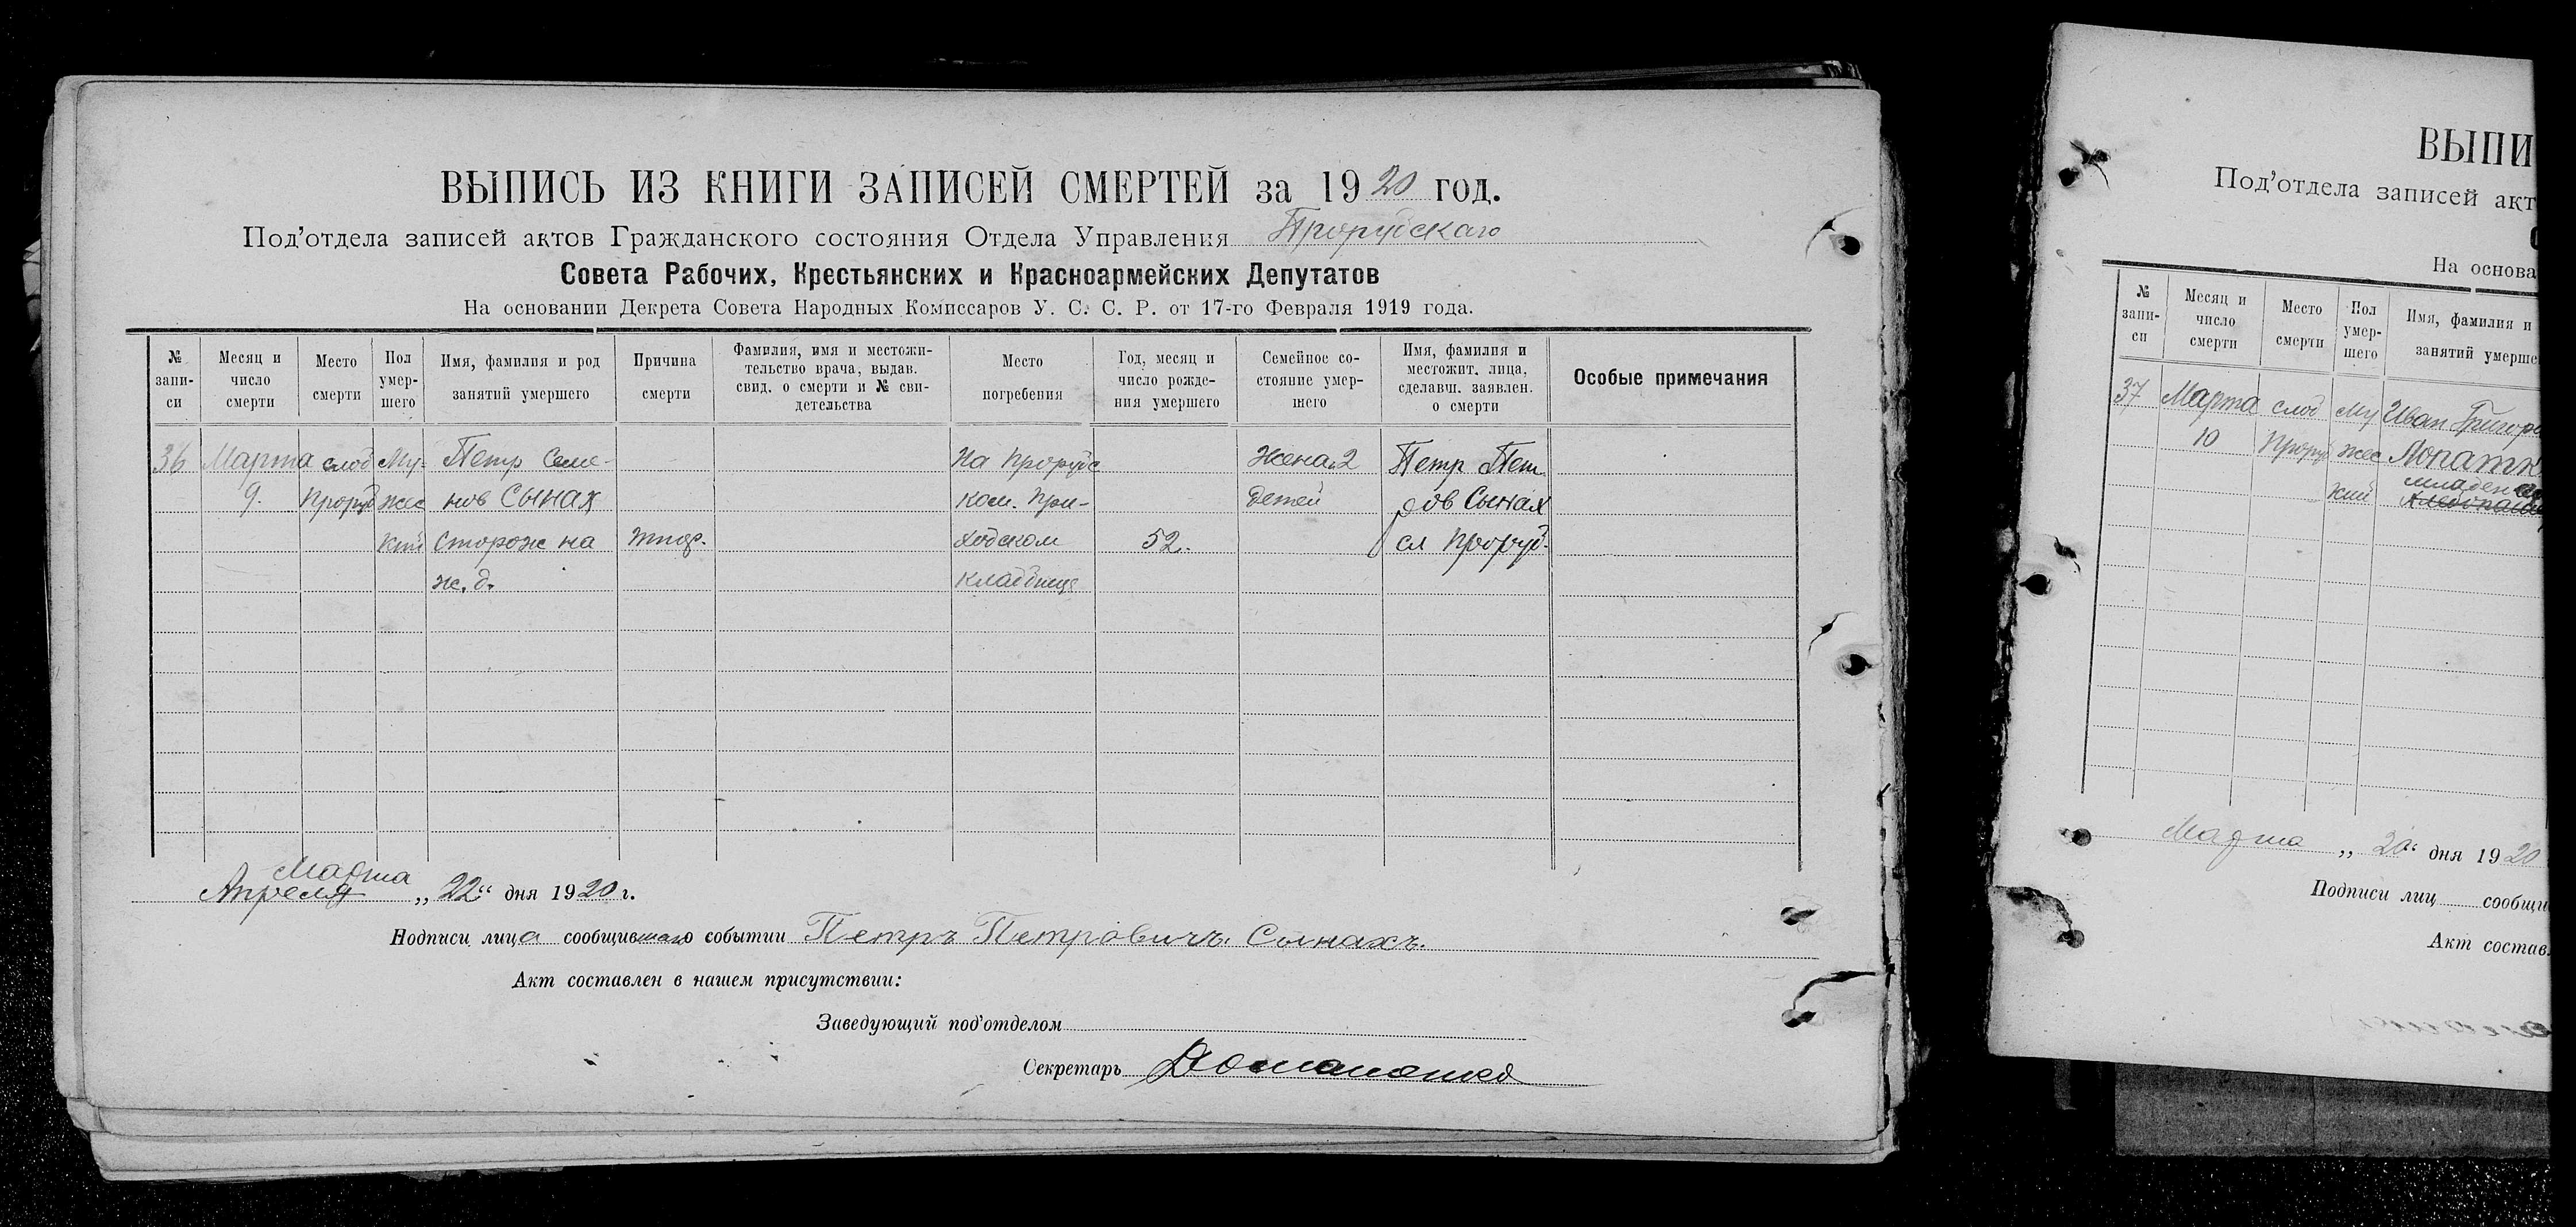 ВЫПИСЬ ИЗ КНИГИ ЗАПИСЕЙ СМЕРТЕЙ за 1920 год.
Под’отдела записей актов Гражданского состояния Отдела Управления Прорубскаго
Совета Рабочих, Крестьянских и Красноармейских Депутатов
На основании Декрета Совета Народных Комиссаров У. С. С. Р. от 17-го Февраля 1919 года.
№ запи-
си
Месяц и
число
смерти
Место
смерти
Пол
умер-
шего
Имя, фамилия и род
занятий умершего
Причина
смерти
Фамилия, имя и местожи-
тельство врача, выдав.
свид. о смерти и № сви-
детельства
Место
погребения
Год, месяц и
число рожде-
ния умершего
Семейное со-
стояние умер-
шего
Имя, фамилия и
местожит. лица,
сделавш. заявлен.
о смерти
Особые примечания
36
Марта
9.
слоб
Проруб
Му-
жес
кий
Петр Семе-
нов Сынах
Сторож на
ж. д.
тиф.
На Прорубс
ком. При-
ходском
кладбище
52.
Жена, 2
детей
Петр Пет
ров Сынах
сл Проруб.
Марта
Апреля „ 22“ дня 1920 г.
Подписи лица сообщившаго о событии Петръ Петровичъ Сынахъ.
Акт составлен в нашем присутствии:
Заведующий под’отделом
Секретарь
ВЫПИ
Под’отдела записей акт
С
На основа
№
запи-
си
Месяц и
число
смерти
Место
смерти
Пол
умер-
шего
Имя, фамилия и
занятий умерше
37
Марта
10
слоб
Проруб
Му
жес
кий
Иван Григорь
Лопатк
младен
Марта „ 20“ дня 1920
Подписи лиц сообщи
Акт состав